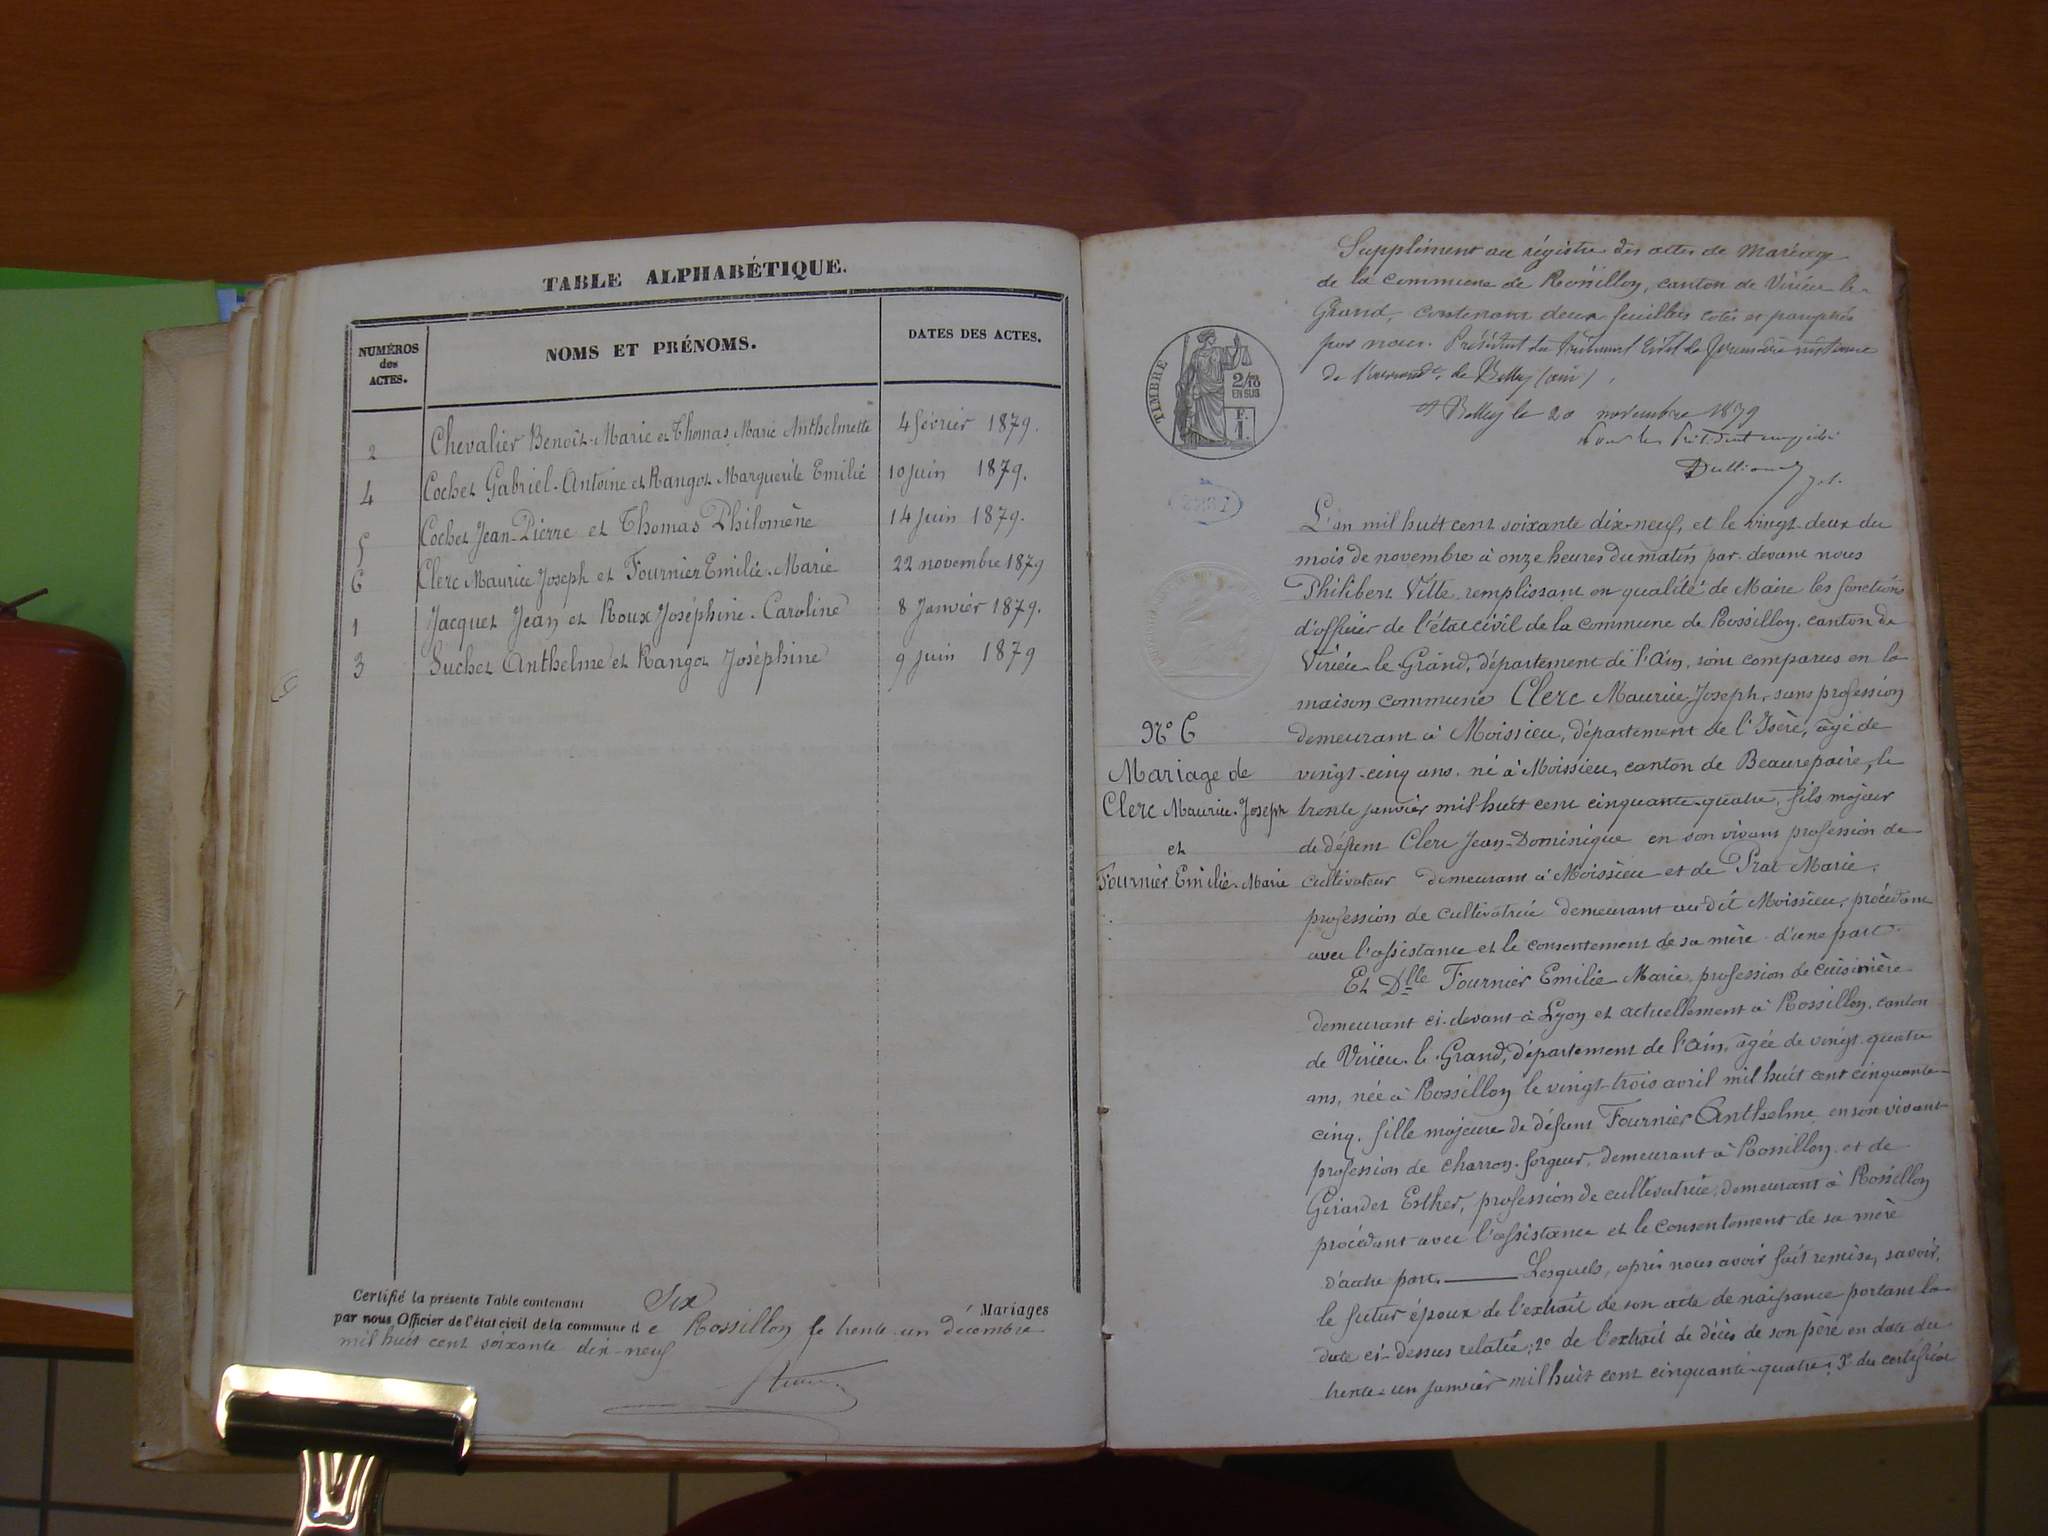 TABLE ALPHABÉTIQUE.
NUMÉROS
des
ACTES.
NOMS ET PRÉNOMS.
DATES DES ACTES.
2 Chevalier Benoît-Marie et Thomas Marie Anthelmette 4 février 1879.
4 Cochet Gabriel-Antoine et Rangot Marguerite Emilie 10 juin 1879.
5 Cochet Jean-Pierre et Thomas Philomène 14 juin 1879.
6 Clerc Maurice Joseph et Fournier Emilie-Marie 22 novembre 1879
1 Jacquet Jean et Roux Joséphine-Caroline 8 Janvier 1879.
3 Suchet Anthelme et Rangot Joséphine 9 juin 1879
Certifié la présente Table contenant Six Mariages
par nous Officier de l'état civil de la commune de Rossillon le trente-un décembre
mil huit cent soixante dix-neuf
Supplément au régistre des actes de Mariage
de la commune de Rossillon, canton de Virieu-le-
Grand, contenant deux feuilles cotés et paraphés
par nous, Président du Tribunal Civil de première instance
de l'arrondt. de Belley (ain).
Belley le 20 novembre 1879
Pour le Président empêché
TIMBRE
2/10
EN SUS
F.
1.
L'an mil huit cent soixante dix-neuf, et le vingt-deux du
mois de novembre à onze heures du matin par-devant nous
Philibert Vitte remplissant en qualité de Maire les fonctions
d'officier de l'état civil de la commune de Rossillon, canton de
Virieu-le-Grand, département de l'Ain, sont comparus en la
maison commune Clerc Maurice-Joseph, sans profession
demeurant à Moissieu, département de l'Isère, âgé de
vingt-cinq ans, né à Moissieu, canton de Beaurepaire, le
trente janvier mil huit cent cinquante-quatre, fils majeur
de défunt Clerc Jean-Dominique en son vivant profession de
cultivateur demeurant à Moissieu et de Prat Marie,
profession de cultivatrice demeurant au dit Moissieu, procédant
avec l'assistance et le consentement de sa mère d'une part.
Nº 6
Mariage de
Clerc Maurice-Joseph
et
Fournier Emilie-Marie
Et Dlle Fournier Emilie-Marie, profession de cuisinière
demeurant ci-devant à Lyon et actuellement à Rossillon, canton
de Virieu-le-Grand, département de l'Ain, âgée de vingt-quatre
ans, née à Rossillon le vingt-trois avril mil huit cent cinquante-
cinq, fille majeure de défunt Fournier Anthelme en son vivant
profession de charron-forgeur, demeurant à Rossillon et de
Girardet Esther, profession de cultivatrice, demeurant à Rossillon
procédant avec l'assistance et le consentement de sa mère
d'autre part. Lesquels, après nous avoir fait remise, savoir,
le futur époux de l'extrait de son acte de naissance portant la
date ci-dessus relatée; 2º de l'extrait de décès de son père en date du
trente-un janvier mil huit cent cinquante-quatre; 3º du certificat